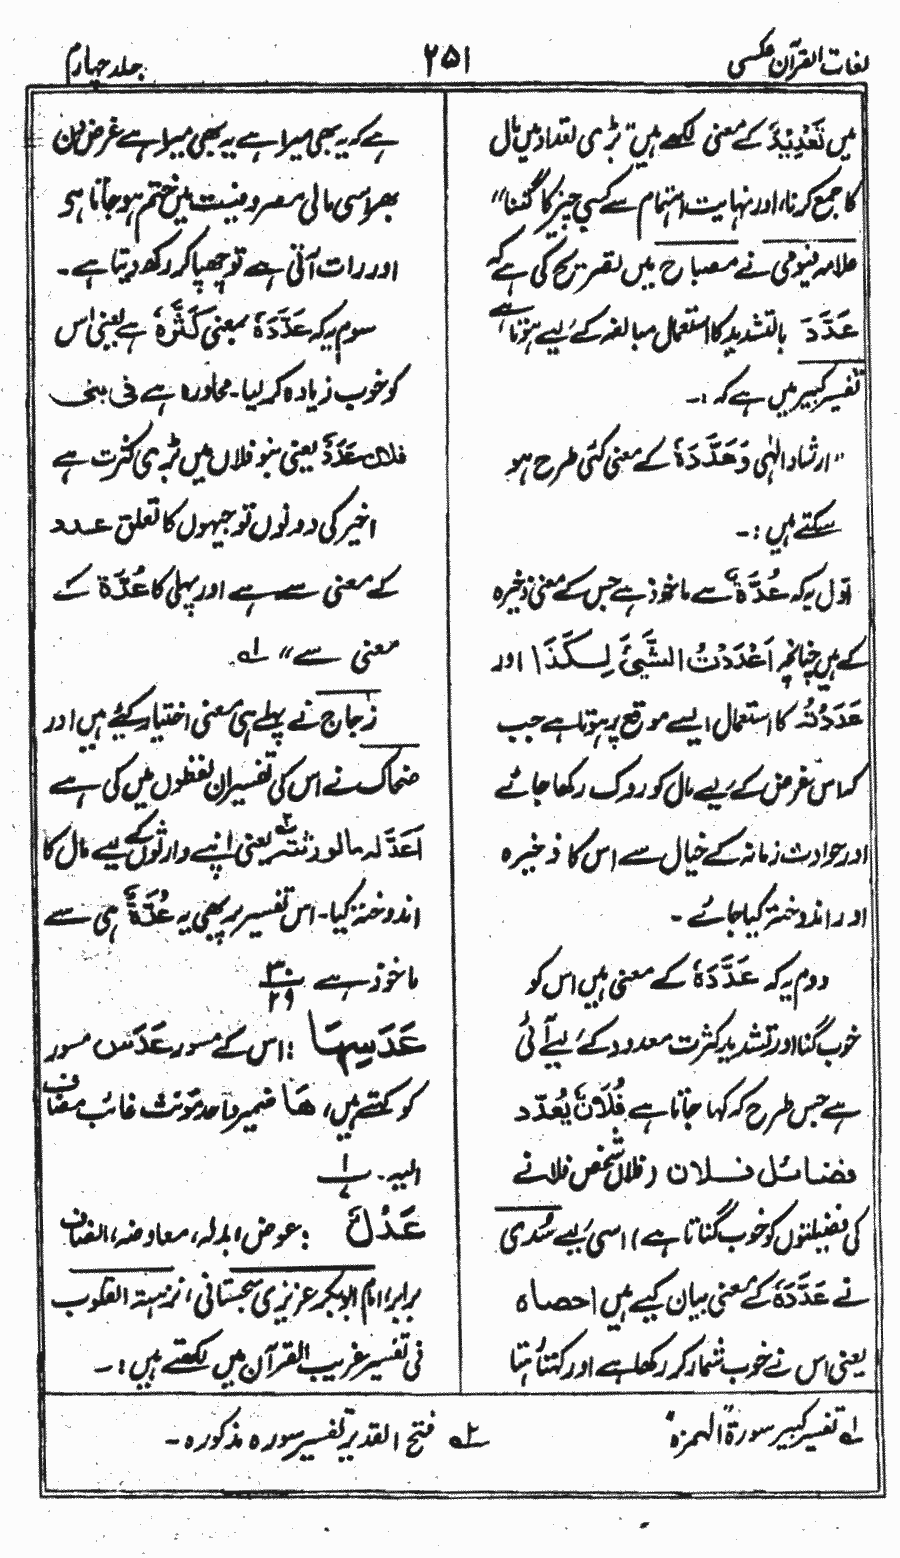 لغات القرآن عکسی
۲۵۱
جلد چہارم
میں تَعْدِیْدٌ کے معنی لکھے ہیں "بڑی تعداد میں مال
کا جمع کرنا، اور نہایت اہتمام سے کسی چیز کا گننا"
علامہ فیومی نے مصباح میں تصریح کی ہے کہ
عَدَّدَ بالتشدید کا استعمال مبالغہ کے لیے ہوتا ہے
تفسیر کبیر میں ہے کہ :۔
"ارشاد الٰہی وَعَدَّدَہٗ کے معنی کئی طرح ہو
سکتے ہیں :۔
اول یہ کہ عُدَّۃٌ سے ماخوذ ہے جس کے معنی ذخیرہ
کے ہیں چنانچہ اَعْدَدْتُ الشَّیْئَ لِکَذَا اور
عَدَدْتُہٗ کا استعمال ایسے موقع پر ہوتا ہے جب
کہ اس غرض کے لیے مال کو روک رکھا جائے
اور حوادث زمانہ کے خیال سے اس کا ذخیرہ
اور اندوختہ کیا جائے ۔
دوم یہ کہ عَدَّدَہٗ کے معنی ہیں اس کو
خوب گنا اور تشدید کثرت معدود کے لیے آئی
ہے جس طرح کہ کہا جاتا ہے فُلَانٌ یُعَدِّدُ
فضائل فلان (فلاں شخص فلانے
کی فضیلتوں کو خوب گناتا ہے) اسی لیے سُدی
نے عَدَّدَہٗ کے معنی بیان کیے ہیں احصاہ
یعنی اس نے خوب شمار کر رکھا ہے اور کہتا ہے
ہے کہ یہ بھی میرا ہے یہ بھی میرا ہے غرض دن
بھر اسی مالی مصروفیت میں ختم ہو جاتا ہے
اور رات آئی ہے تو چھپا کر رکھ دیتا ہے ۔
سوم یہ کہ عَدَّدَہٗ بمعنی کَثَّرَہٗ ہے یعنی اس
کو خوب زیادہ کر لیا ۔ محاورہ ہے فی بنی
فلان عَدَدٌ یعنی بنو فلاں میں بڑی کثرت ہے
اخیر کی دونوں توجیہوں کا تعلق عدد
کے معنی سے ہے اور پہلی کا عُدَّۃ کے
معنی سے" لہ
زجاج نے پہلے ہی معنی اختیار کیے ہیں اور
ضحاک نے اس کی تفسیر ان لفظوں میں کی ہے
اَعَدَّ لہ مالو رثتہ یعنی اپنے وارثوں کے لیے مال کا
اندوختہ کیا ۔ اس تفسیر پر بھی یہ عُدَّۃٌ ہی سے
ماخوذ ہے ۳۰/۲۹
عَدَسِہَا : اس کے مسور عَدَس مسور
کو کہتے ہیں، ھَا ضمیر واحد مؤنث غائب مضاف
الیہ ۔ ۱
عَدْلٌ : عوض، بدلہ، معاوضہ، انصاف
برابر، امام ابوبکر عزیزی سجستانی، نزہتہ القلوب
فی تفسیر غریب القرآن میں لکھتے ہیں :۔
لہ تفسیر کبیر سورۃ الہمزہ
۲ہ فتح القدیر تفسیر سورہ مذکورہ ۔